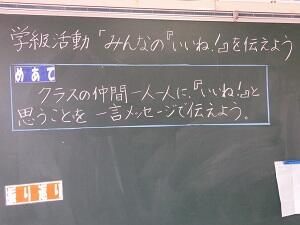 学級活動「みんなの『いいね!』を伝えよう
めあて
クラスの仲間一人一人に、『いいね!』と
思うことを一言メッセージで伝えよう。